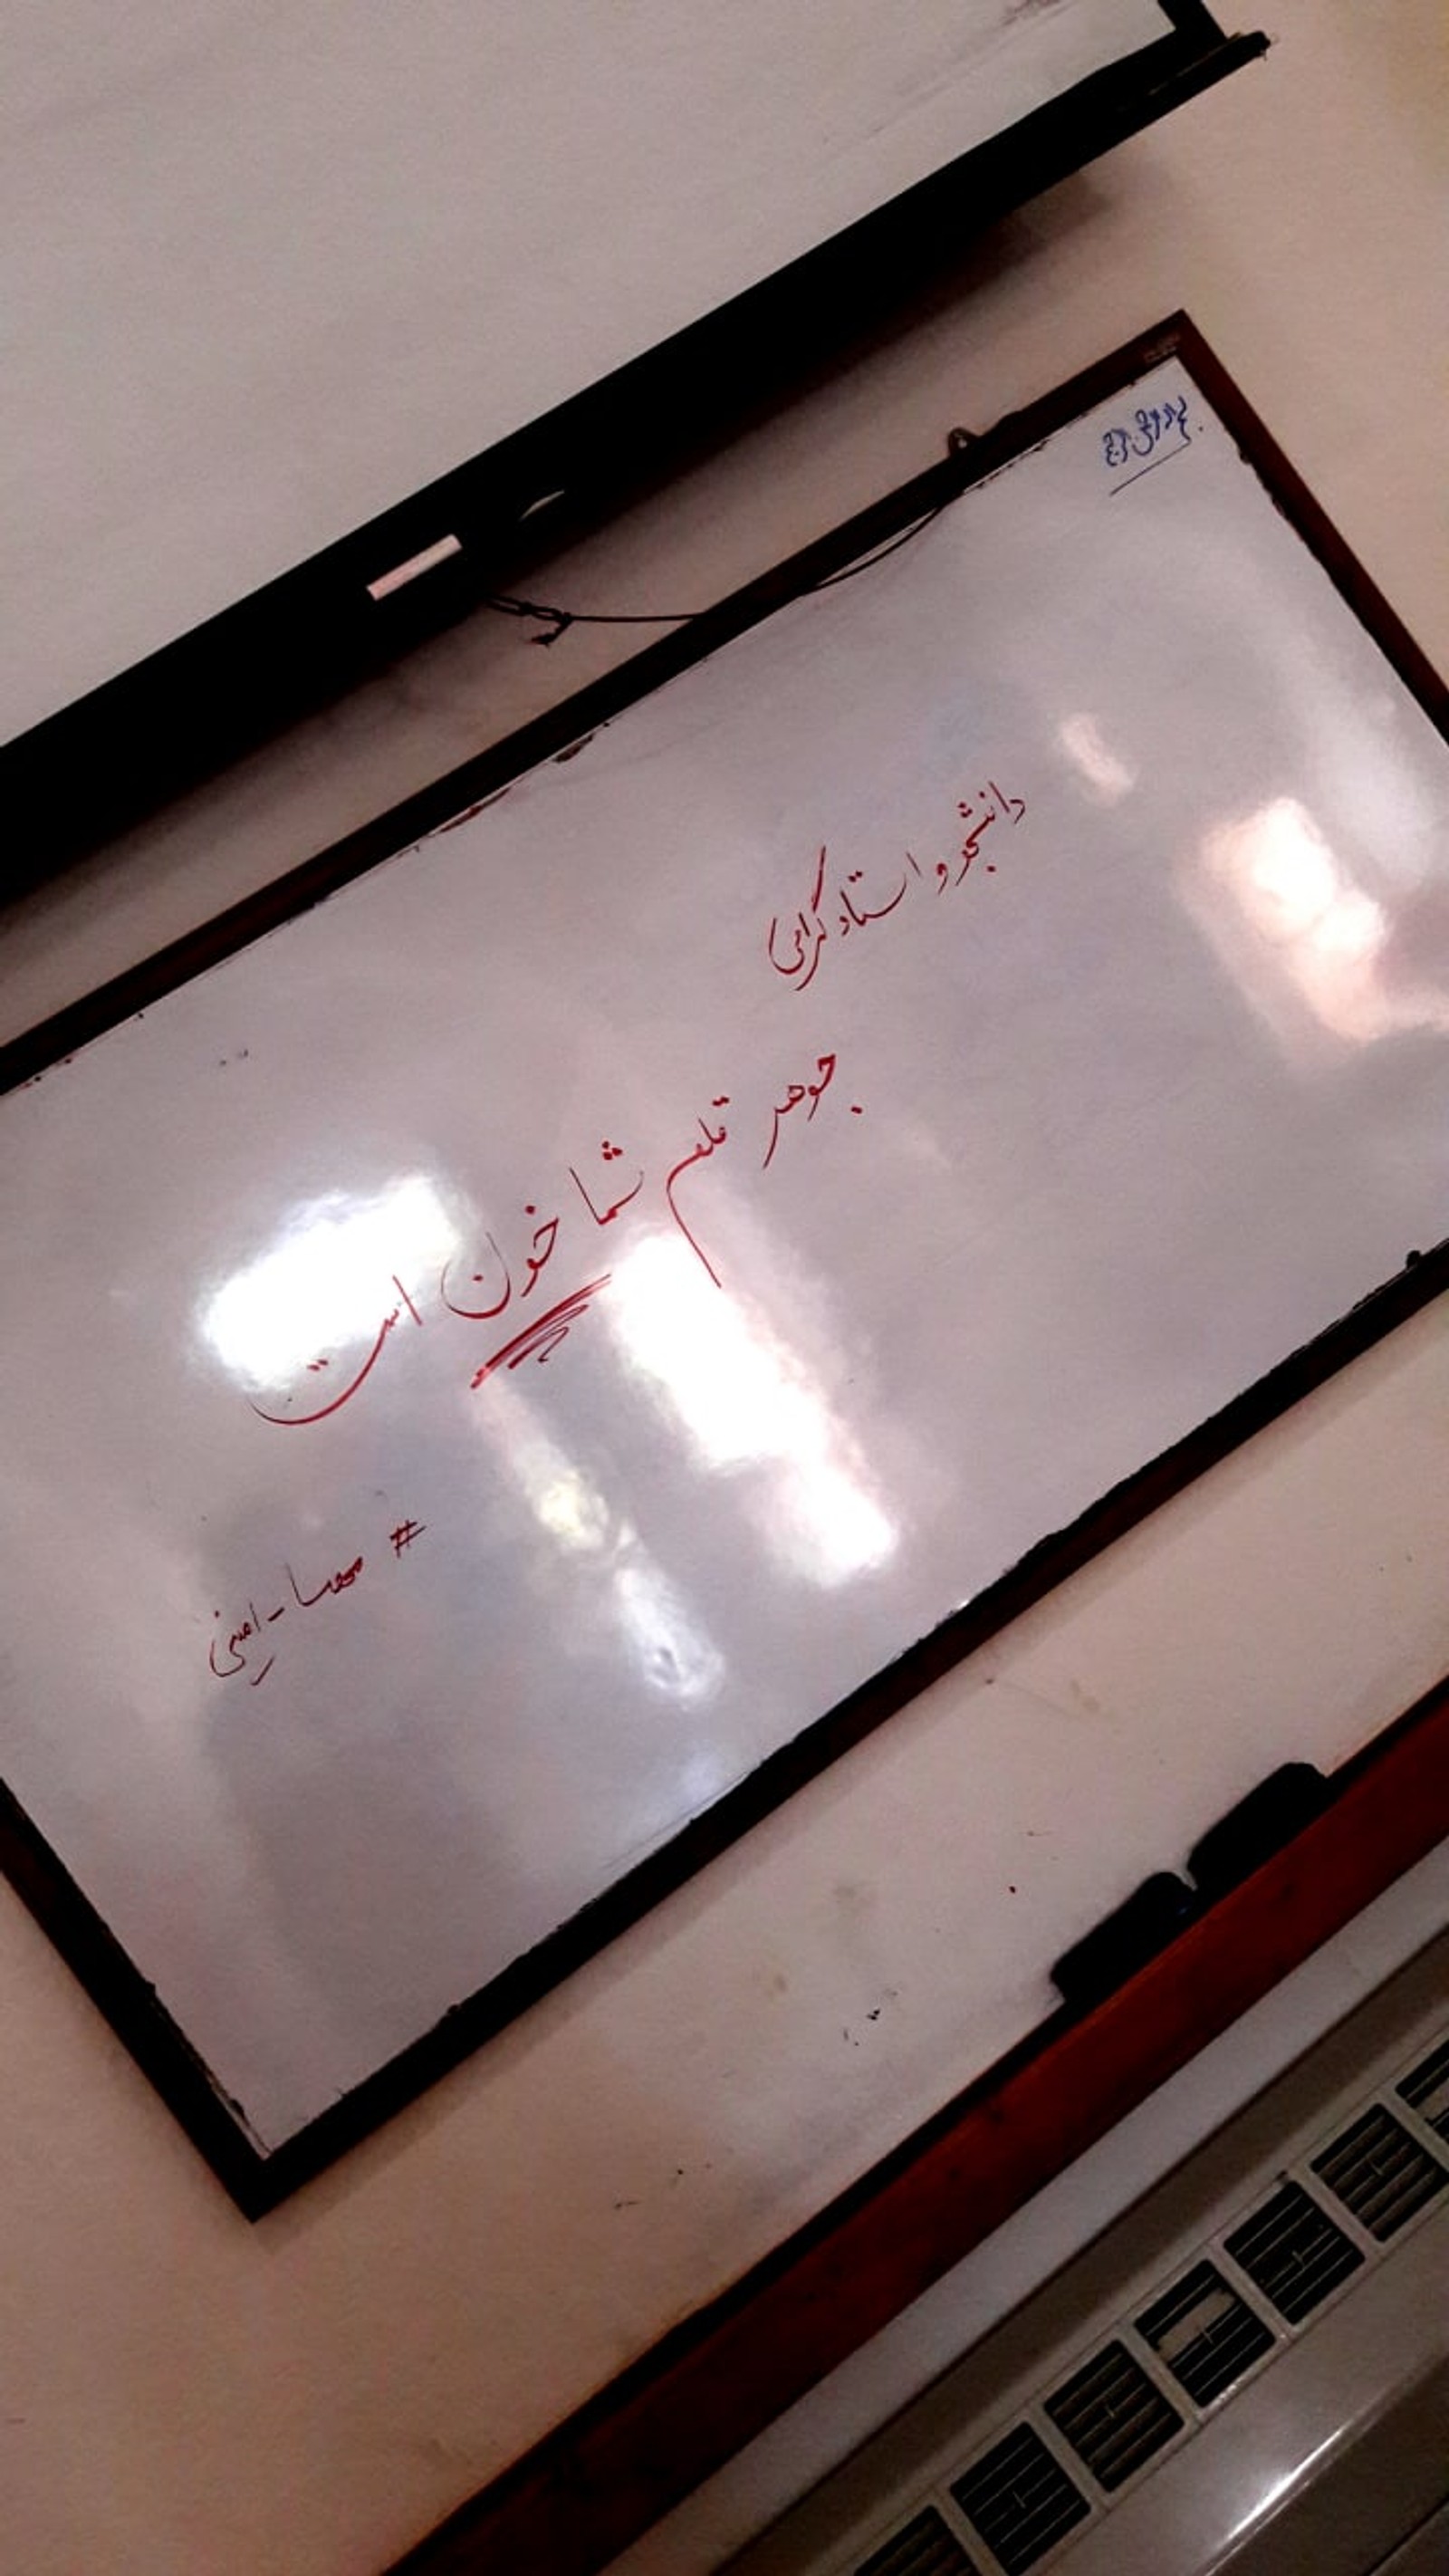 دانشجو و استاد گرامی
جوهر قلم شما خون است
# مهسا_امینی